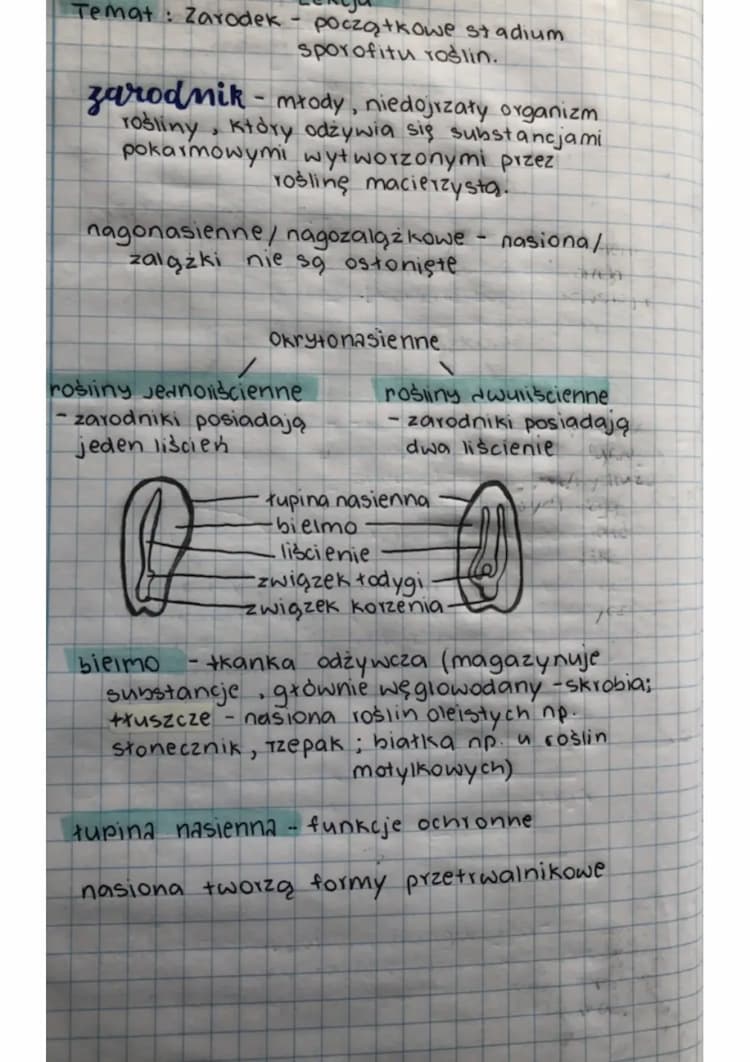 Lekcja
Temat : Zarodek - początkowe stadium
sporofitu roślin.
zarodnik - młody, niedojrzały organizm
rośliny, który odżywia się substancjami
pokarmowymi wytworzonymi przez
roślinę macierzystą.
nagonasienne/nagozalążkowe - nasiona/
zalążki nie są osłonięte
okrytonasienne
rośliny jednoliścienne rośliny dwuliścienne
- zarodniki posiadają - zarodniki posiadają
jeden liścień dwa liścienie
łupina nasienna
bielmo
liścienie
związek łodygi
związek korzenia
bielmo - tkanka odżywcza (magazynuje
substancje, głównie węglowodany - skrobia;
tłuszcze - nasiona roślin oleistych np.
słonecznik, rzepak ; białka np. u roślin
motylkowych)
łupina nasienna - funkcje ochronne
nasiona tworzą formy przetrwalnikowe